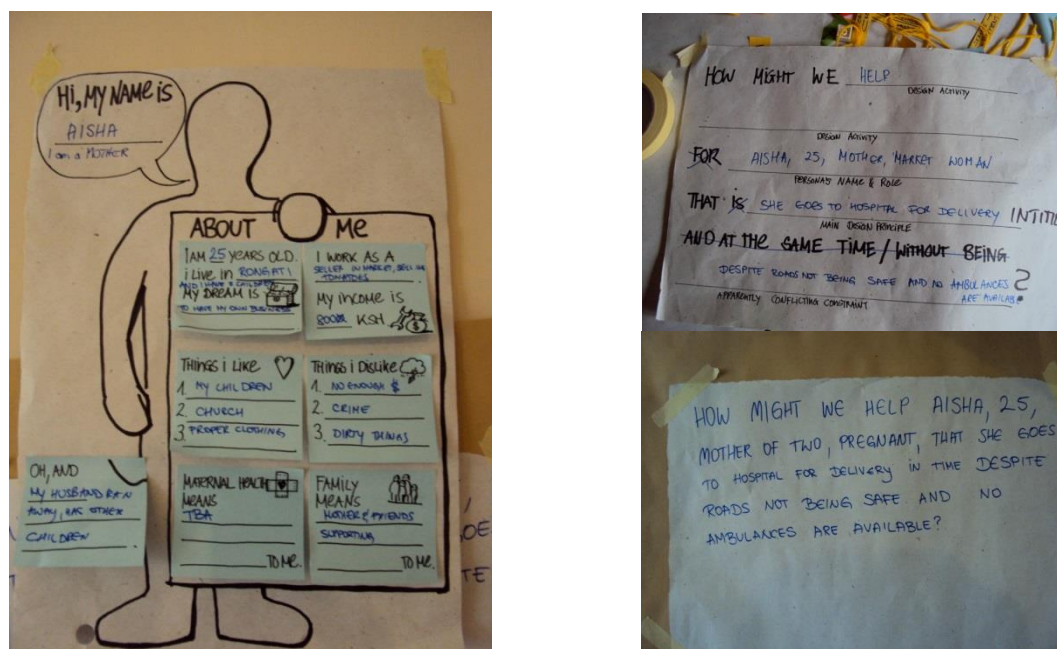 Hi, MY NAME iS
AISHA
I am a MOTHER
ABOUT ME
I AM 25 YEARS OLD.
i Live in RONGAI I
AND I HAVE 2 CHILDREN
MY DREAM iS
TO HAVE MY OWN BUSINESS
I WORK AS A
SELLER IN MARKET, SELLING
TOMATOES
My income is
KSH
THINGS i LIKE
1. MY CHILDREN
2. CHURCH
3. PROPER CLOTHING
THINGS i DISLIKE
1. NO ENOUGH $
2. CRIME
3. DIRTY THINGS
MATERNAL HEALTH
MEANS
TBA
TO ME.
FAMILY
MEANS
MOTHER & FRIENDS
SUPPORTING
TO ME.
OH, AND
MY HUSBAND RAN
AWAY, HAS OTHER
CHILDREN
HOW MIGHT WE HELP
DESIGN ACTIVITY
DESIGN ACTIVITY
FOR AISHA, 25, MOTHER, MARKET WOMAN
PERSONA'S NAME & ROLE
THAT iS SHE GOES TO HOSPITAL FOR DELIVERY
MAIN DESIGN PRINCIPLE
AND AT THE SAME TIME / WITHOUT BEING
DESPITE ROADS NOT BEING SAFE AND NO AMBULANCES ?
ARE AVAILAB
APPARENTLY CONFLICTING CONSTRAINT
HOW MIGHT WE HELP AISHA, 25,
MOTHER OF TWO, PREGNANT, THAT SHE GOES
TO HOSPITAL FOR DELIVERY IN TIME DESPITE
ROADS NOT BEING SAFE AND NO
AMBULANCES ARE AVAILABLE?